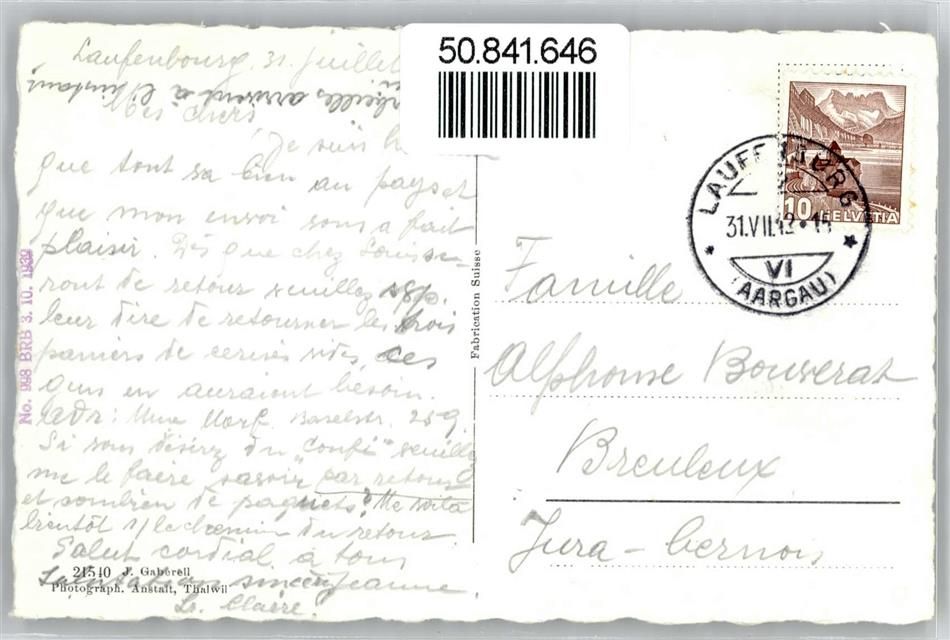 50.841.646
Laufenbourg, 31. juillet
arrivent à l'instant
Mes chers
Je suis
que tout va bien au pays et
que mon envoi vous a fait
plaisir. Dès que chez
ront de retour veuillez svp.
leur dire de retourner les trois
paniers de cerises vides, ces
gens en auraient besoin.
adr: Mme Morf. Baselstr. 259.
Si vous désirez du "confi" veuillez
me le faire savoir par retour
et combien de paquets? Me voilà
bientôt s/ le chemin du retour
Salut cordial à tous
Jeanne
Sr. Claire.
21540 J. Gaberell
Photograph. Anstalt, Thalwil
No. 998 BRB 3. 10. 1939
Fabrication Suisse
10 HELVETIA
LAUFENBURG
31.VII.42
VI
(AARGAU)
Famille
Alphonse Bouverat
Breuleux
Jura-bernois